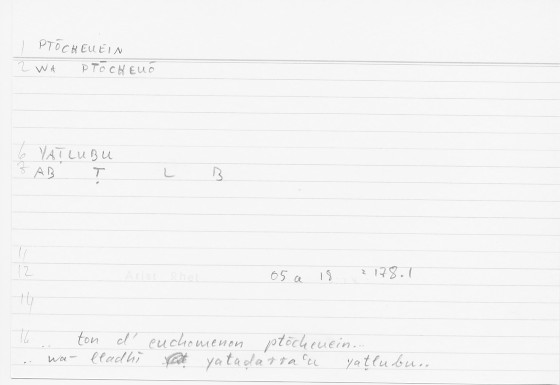 1 PTŌCHEUEIN
2 WA PTŌCHEUŌ
6 YAṬLUBU
7 AB Ṭ L B
11
12 05 a 19 178.1
14
16 .. ton d' euchomenon ptōcheuein..
.. wa- lladhī yataḍarraʿu yaṭlubu..